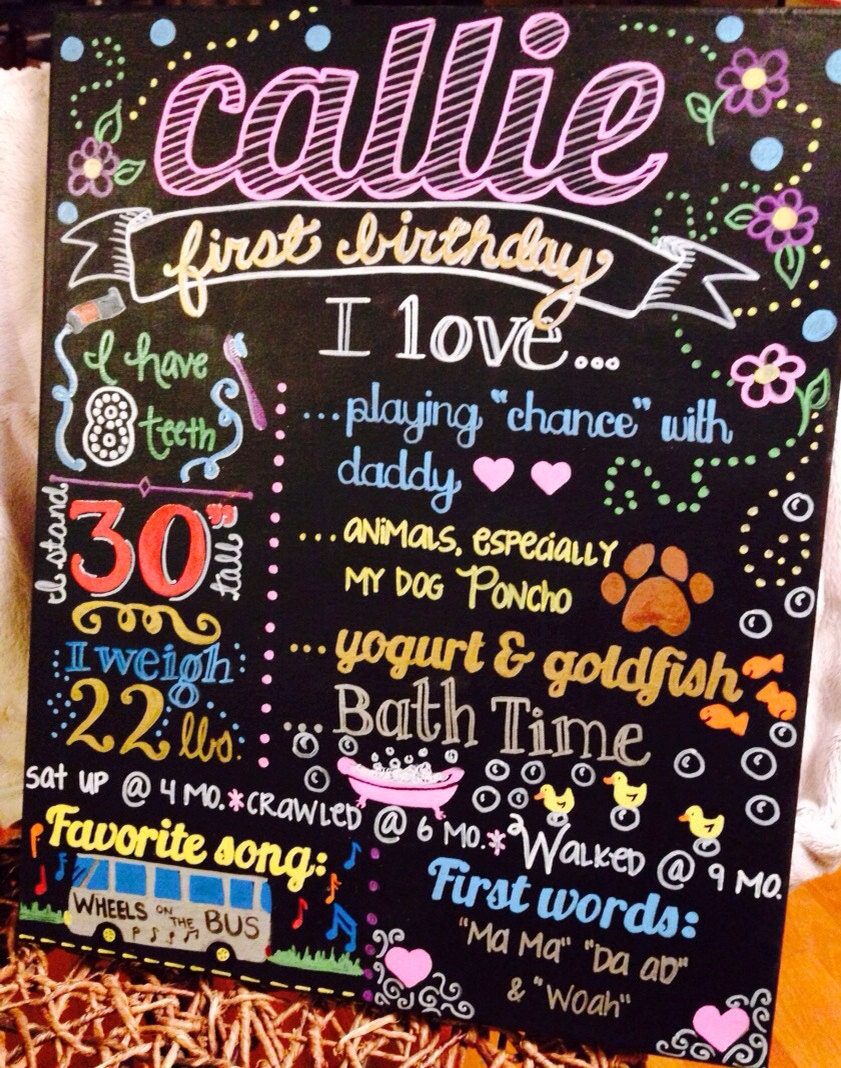 callie
first birthday
I love...
I have
8
teeth
I stand
30"
tall
I weigh
22 lbs.
...playing "chance" with
daddy
...ANiMALS, ESPECIALLY
MY DOG PONCHO
...yogurt & goldfish
...Bath Time
SAT UP @ 4 MO.*CRAWLED @ 6 MO.*WALKED @ 9 MO.
Favorite song:
WHEELS ON THE BUS
First words:
"MA MA" "DA aD"
& "WOAH"